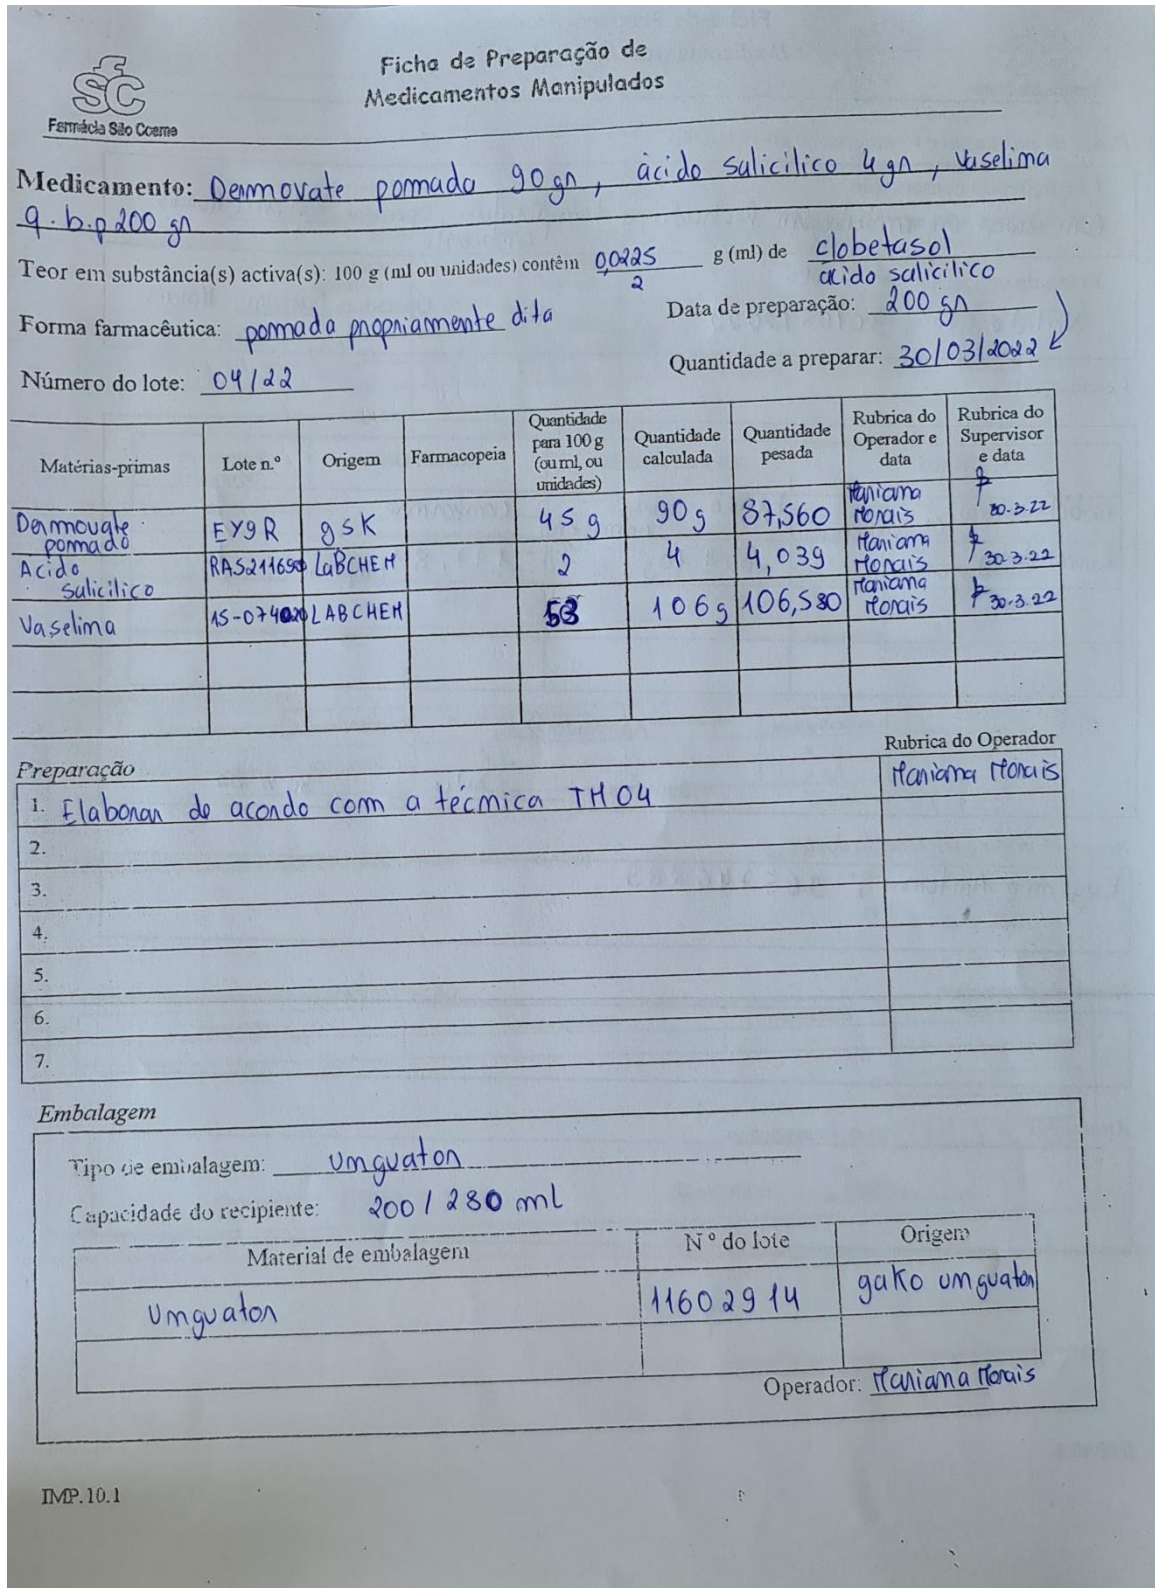 Ficha de Preparação de
Medicamentos Manipulados
SfC
Farmácia São Cosme
Medicamento: Dermovate pomada 90 gr, ácido salicilico 4 gr, vaselina
q.b.p 200 gr
Teor em substância(s) activa(s): 100 g (ml ou unidades) contêm 0,0225 g (ml) de clobetasol
2 ácido salicilico
Forma farmacêutica: pomada propriamente dita
Data de preparação: 200 gr
Número do lote: 04/22
Quantidade a preparar: 30/03/2022
Matérias-primas Lote n.º Origem Farmacopeia Quantidade para 100 g (ou ml, ou unidades) Quantidade calculada Quantidade pesada Rubrica do Operador e data Rubrica do Supervisor e data
Dermovate pomada EY9R gsk 45 g 90 g 87,560 Mariana Morais 30.3.22
Acido salicilico LABCHEM 2 4 4,039 Mariana Morais 30.3.22
Vaselina LABCHEM 53 106 g 106,580 Mariana Morais 30.3.22
Preparação Rubrica do Operador
1. Elaborar de acordo com a técnica TM04 Mariana Morais
2.
3.
4.
5.
6.
7.
Embalagem
Tipo de embalagem: Unguator
Capacidade do recipiente: 200 / 280 ml
Material de embalagem N º do lote Origem
Unguator 11602914 gako unguator
Operador: Mariana Morais
IMP.10.1